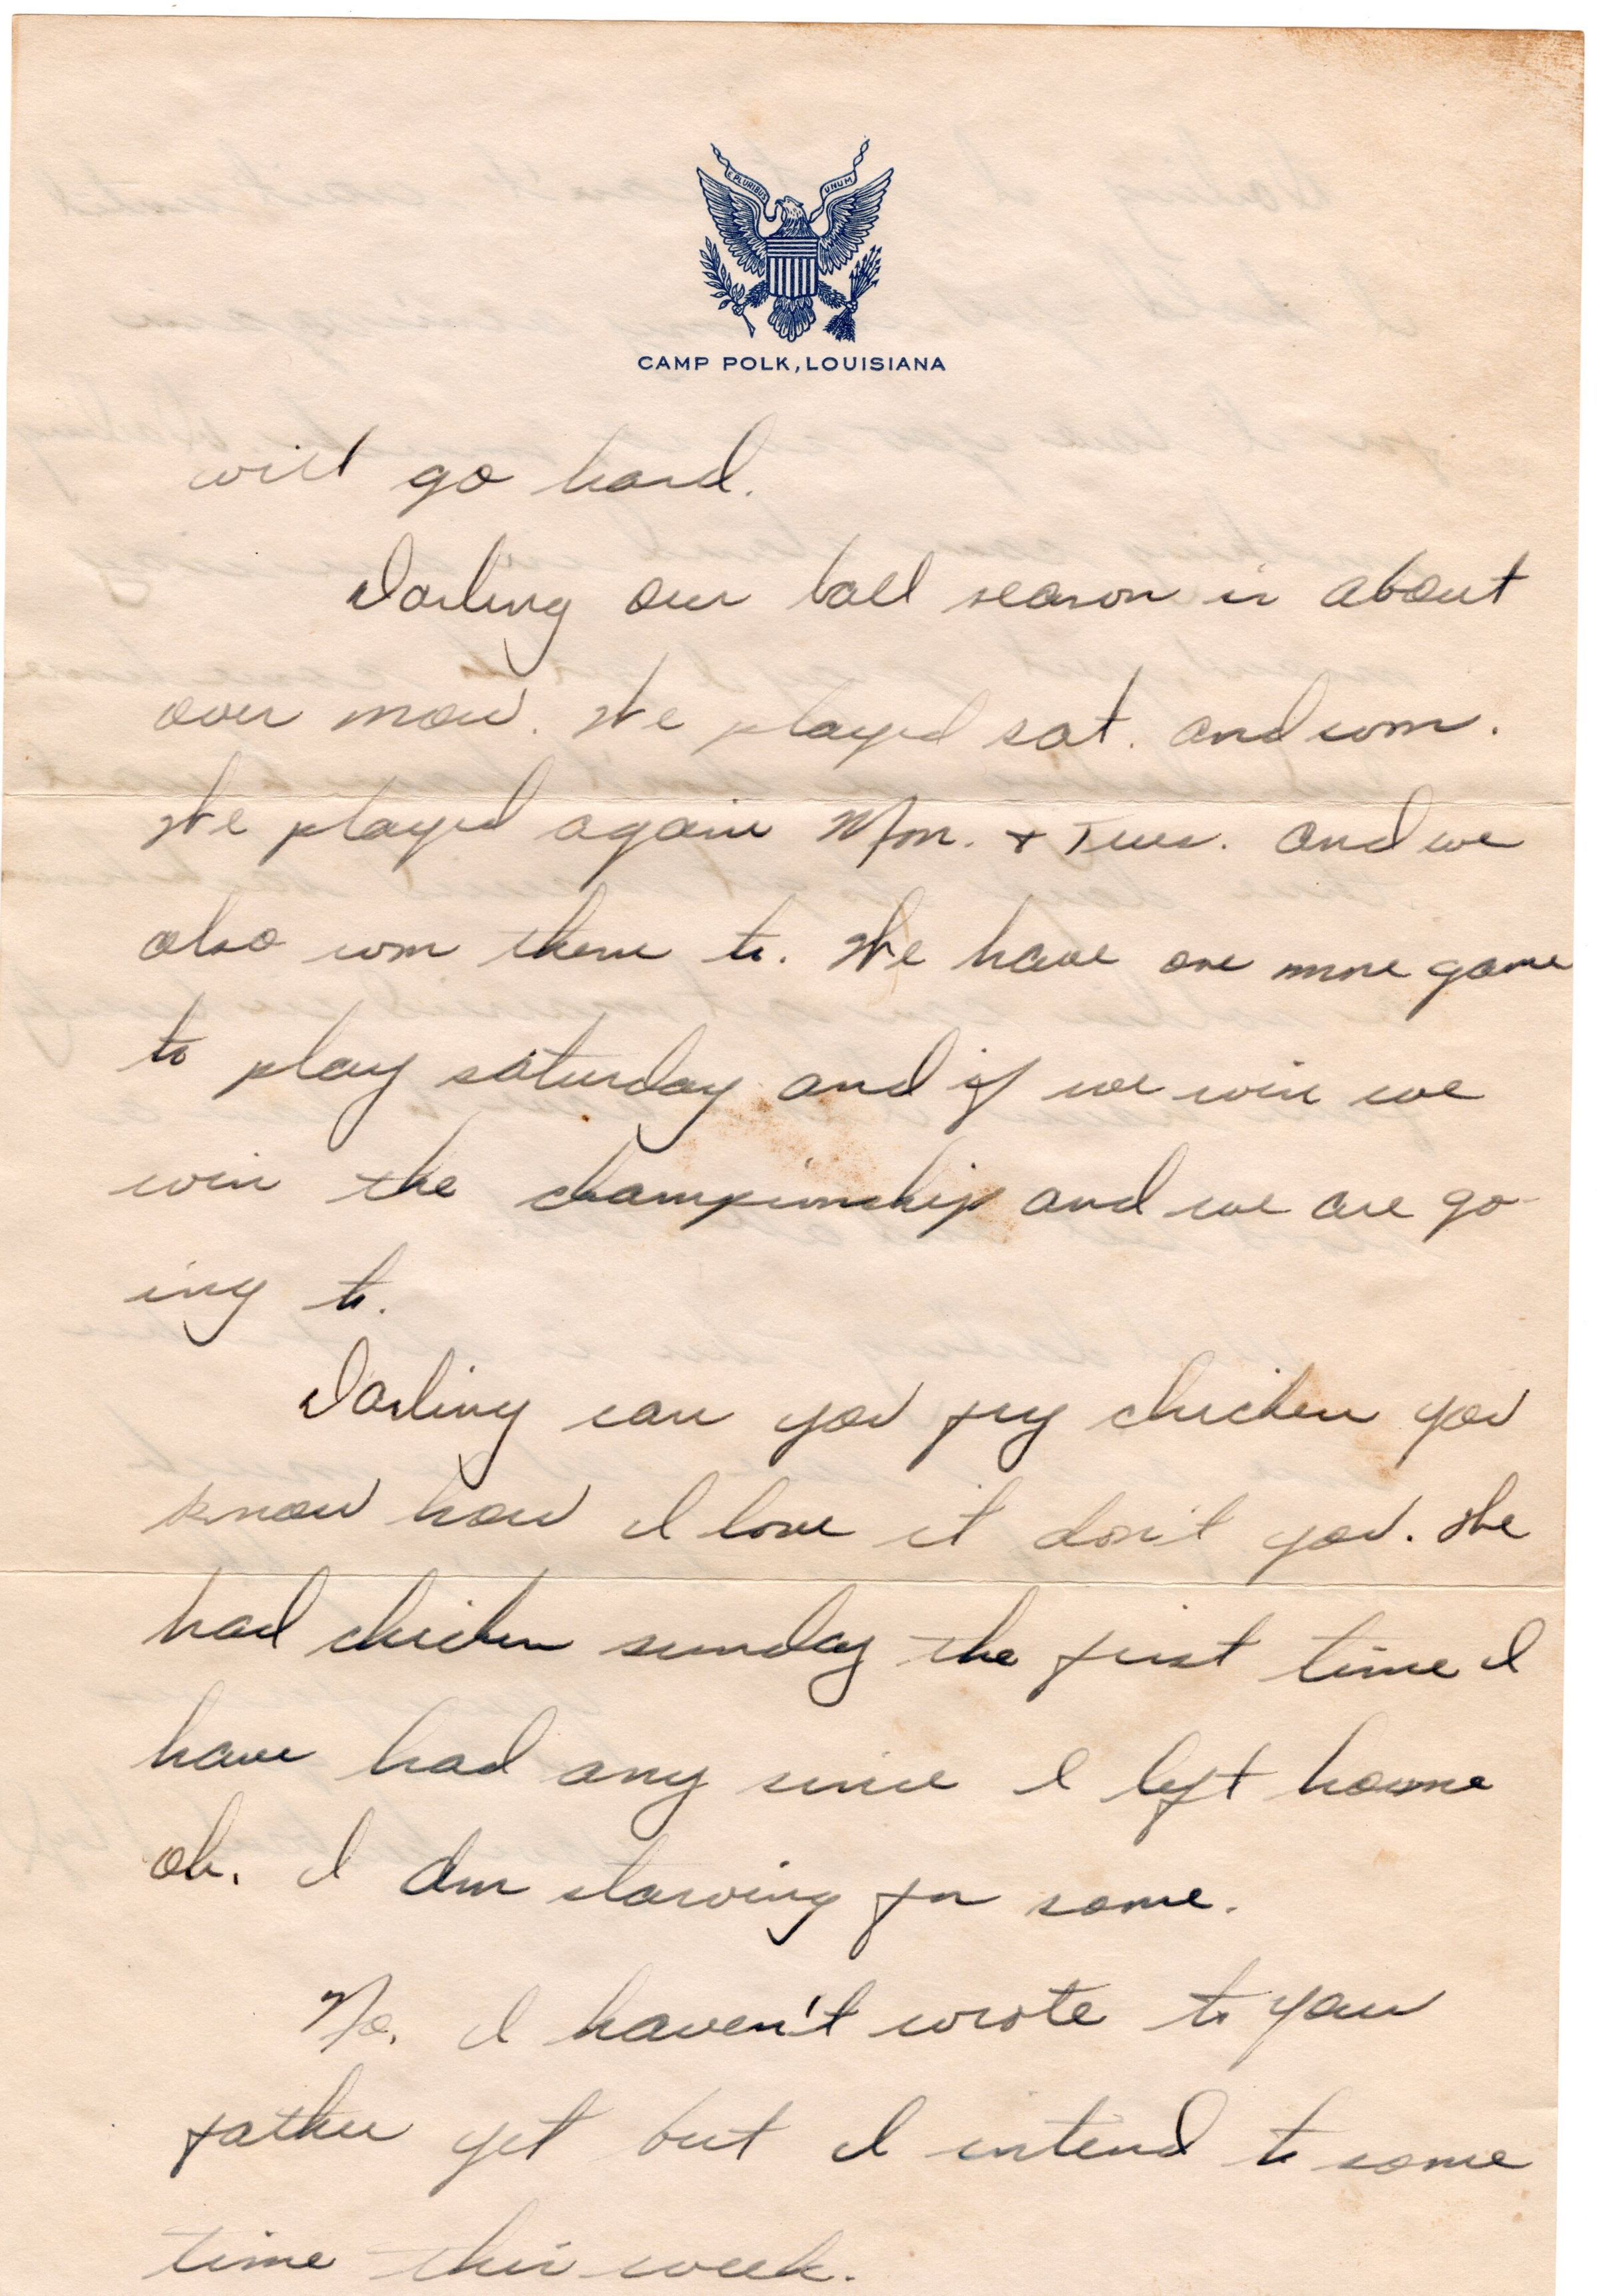 E PLURIBUS UNUM
CAMP POLK, LOUISIANA
will go hard.
Darling our ball season is about
over now. We played sat. and won.
We played again Mon. + Tues. and we
also won them to. We have one more game
to play saturday and if we win we
win the championship and we are go-
ing to.
Darling can you fry chicken you
know how I love it don't you. We
had chicken sunday the first time I
have had any since I left home
oh. I am starving for some.
No. I haven't wrote to your
father yet but I intend to some
time this week.